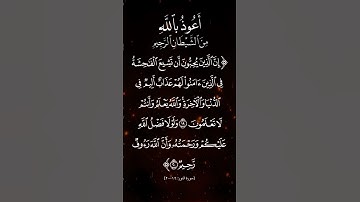 أَعُوذُ بِٱللَّهِ
مِنَ ٱلشَّيْطَانِ ٱلرَّجِيمِ
﴿إِنَّ ٱلَّذِينَ يُحِبُّونَ أَن تَشِيعَ ٱلْفَٰحِشَةُ
فِي ٱلَّذِينَ ءَامَنُوا۟ لَهُمْ عَذَابٌ أَلِيمٌ فِي
ٱلدُّنْيَا وَٱلْءَاخِرَةِ ۚ وَٱللَّهُ يَعْلَمُ وَأَنتُمْ
لَا تَعْلَمُونَ ۝١٩ وَلَوْلَا فَضْلُ ٱللَّهِ
عَلَيْكُمْ وَرَحْمَتُهُۥ وَأَنَّ ٱللَّهَ رَءُوفٌ
رَّحِيمٌ ۝٢٠﴾
[سورة النور: ١٩-٢٠]